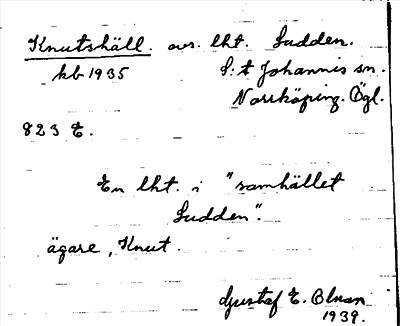 Knutshäll. avs. lht. Sudden.
kb 1935 S:t Johannis sn.
Norrköping. Ögl.
823 E.
En lht. i "samhället
Sudden".
ägare, Knut.
Gustaf E. Olman
1939.